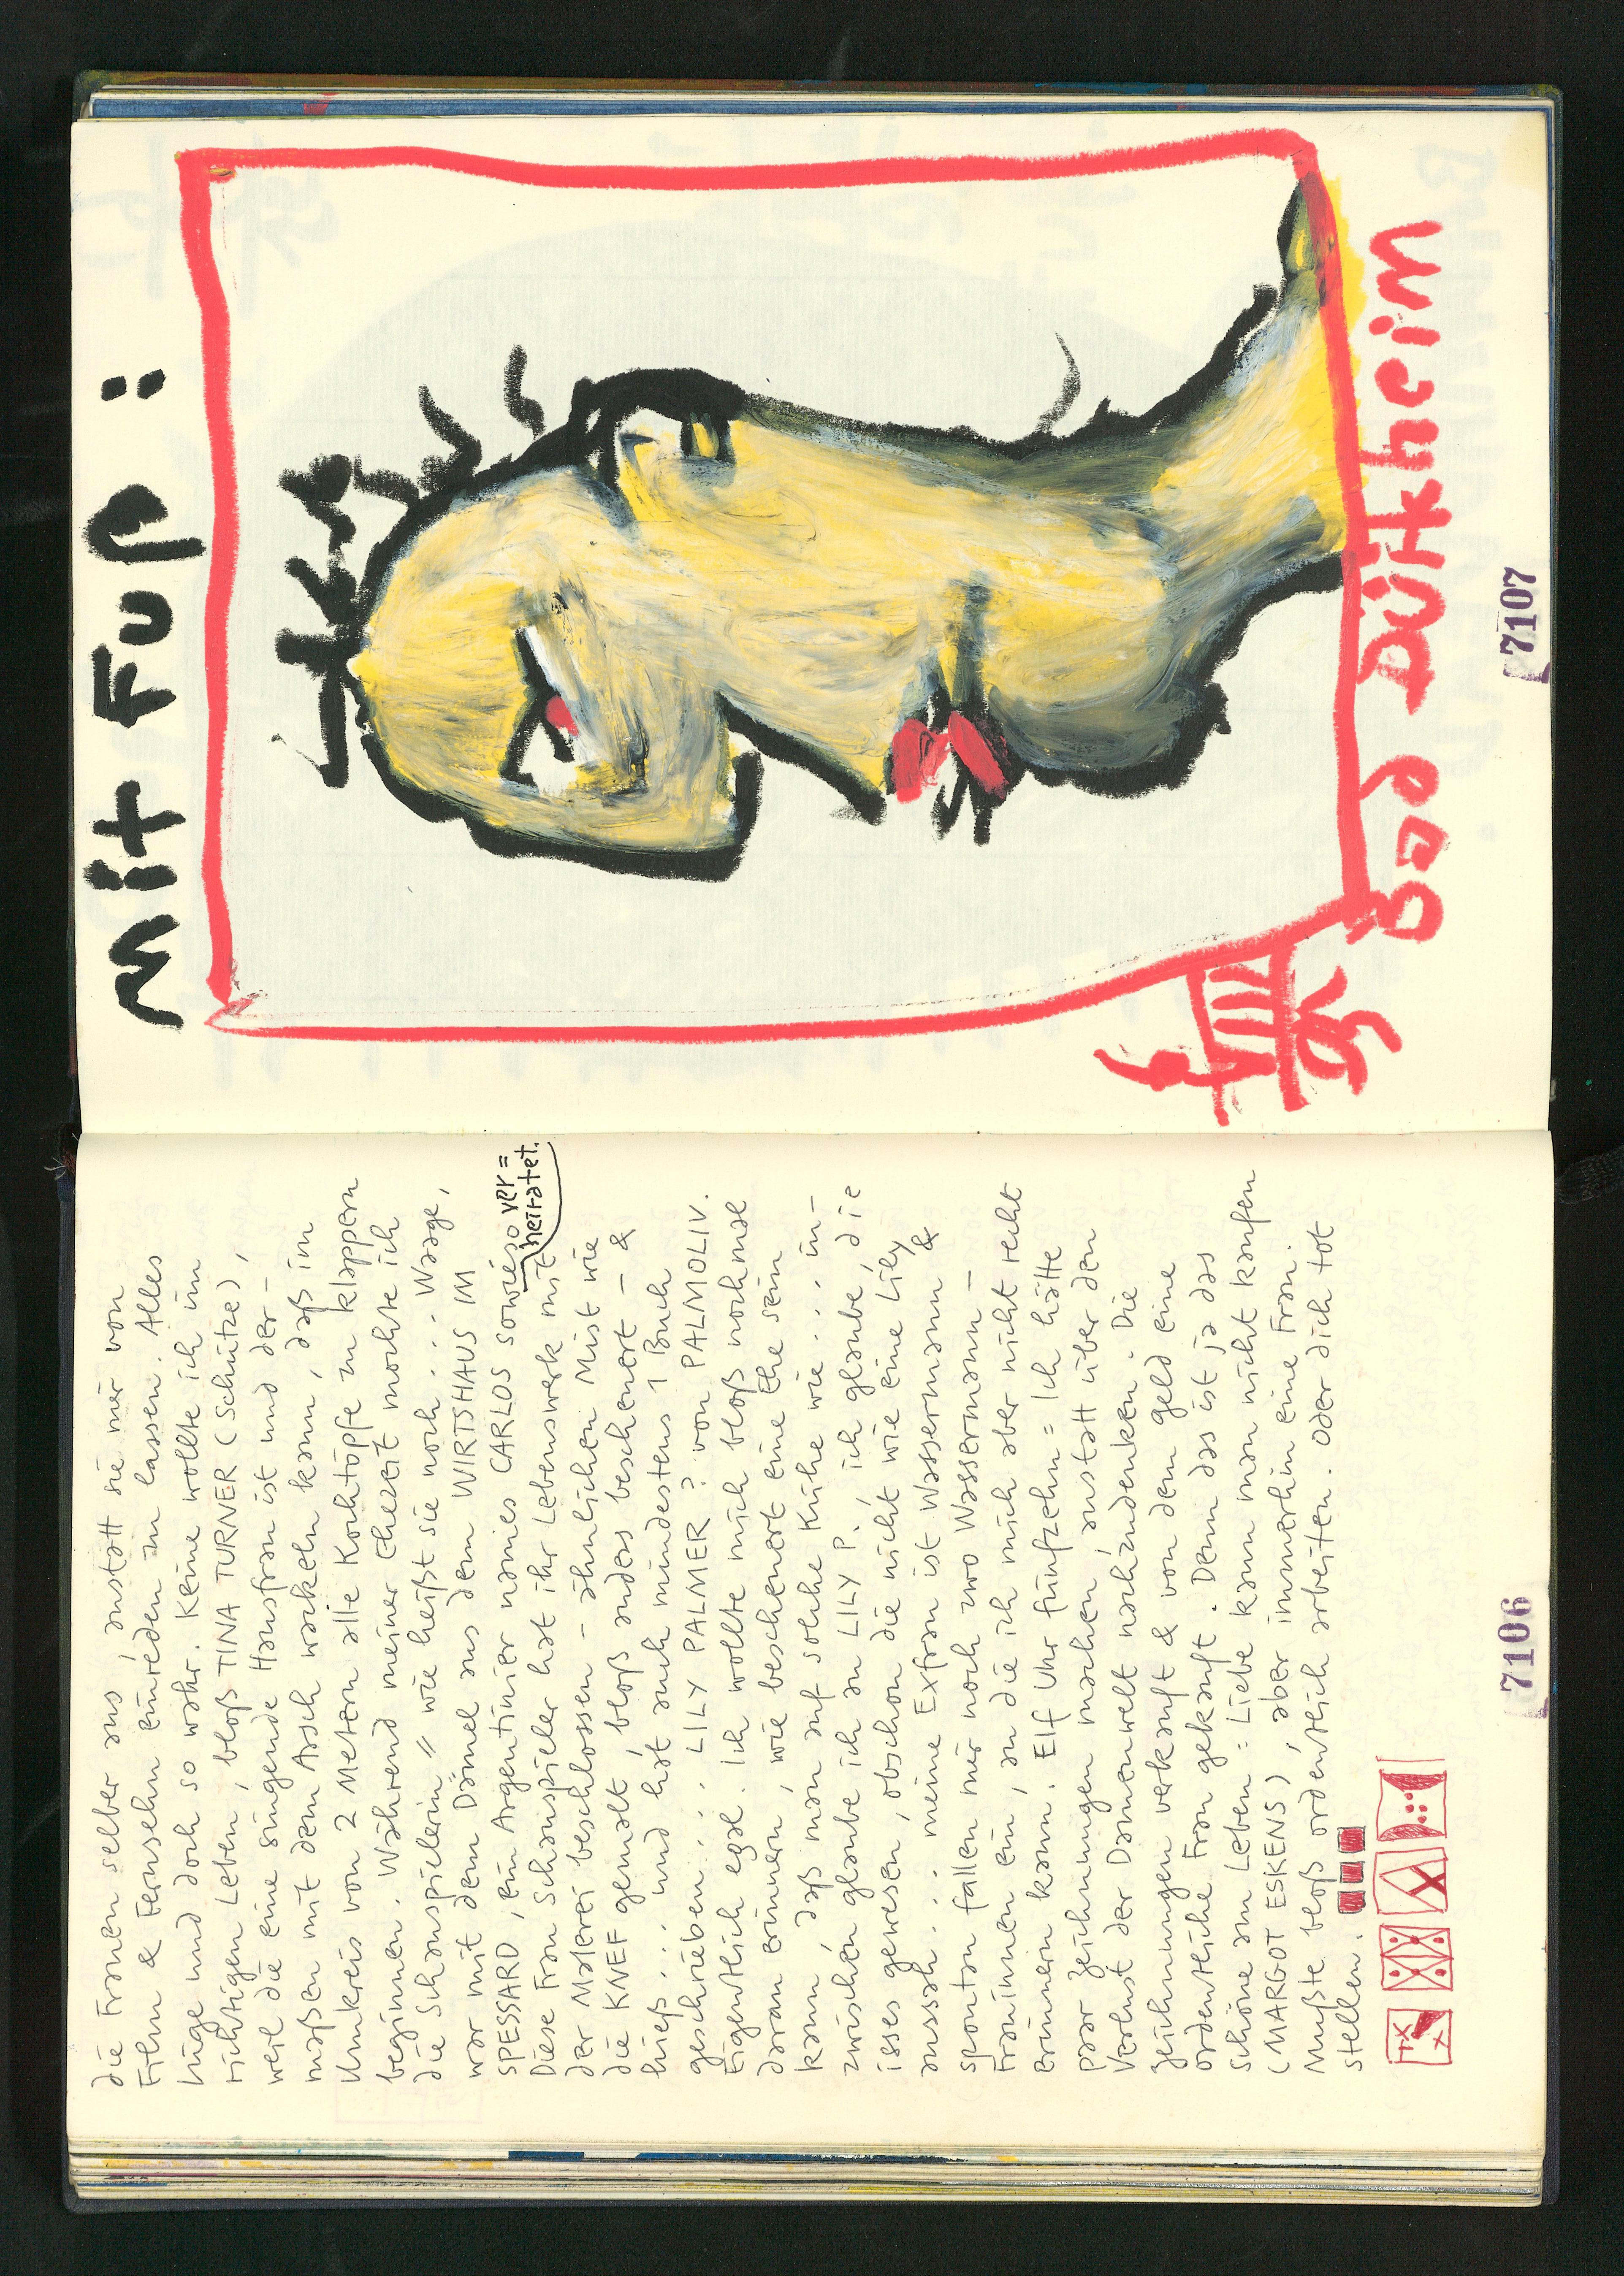 die Frauen selber aus, anstatt sie mir von
Film & Fernsehn einreden zu lassen. Alles
Lüge und doch so wahr. Keine wollte ich im
richtigen Leben, bloß TINA TURNER (Schütze),
weil die eine singende Hausfrau ist und der-
maßen mit dem Arsch wackeln kann, daß im
Umkreis von 2 Metern alle Kochtöpfe zu klappern
beginnen. Während meiner Ehezeit mochte ich
die Schauspielerin " wie heißt sie noch ... Waage,
war mit dem Dämel aus dem WIRTSHAUS IM
SPESSARD, ein Argentinier namies CARLOS sowieso ver=
heiratet.
Diese Frau Schauspieler hat ihr Lebenswerk mit
der Malerei beschlossen - ähnlichen Mist wie
die KNEF gemalt, bloß anders bescheuert - &
hieß ... und hat auch mindestens 1 Buch
geschrieben ... LILY PALMER? von PALMOLIV.
Eigentlich egal. Ich wollte mich bloß nochmal
daran erinnern, wie bescheuert eine Ehe sein
kann, daß man auf solche Kühe wie ... in-
zwischen glaube ich an LILY P., ich glaube, die
isses gewesen, obschon die nicht wie eine Lily
aussah ... meine Exfrau ist Wassermann &
spontan fallen mir noch zwo Wassermann-
Frauinnen ein, an die ich mich aber nicht recht
erinnern kann. Elf Uhr fünfzehn = Ich hätte
paar Zeichnungen machen, anstatt über den
Verlust der Damenwelt nachzudenken. Die
Zeichnungen verkauft & von dem Geld eine
ordentliche Frau gekauft. Denn das ist ja das
Schöne am Leben: Liebe kann man nicht kaufen
(MARGOT ESKENS), aber immerhin eine Frau.
Mußte bloß ordentlich arbeiten. Oder dich tot
stellen.
7106
Mit Fuß:
Bad Dürkheim
7107